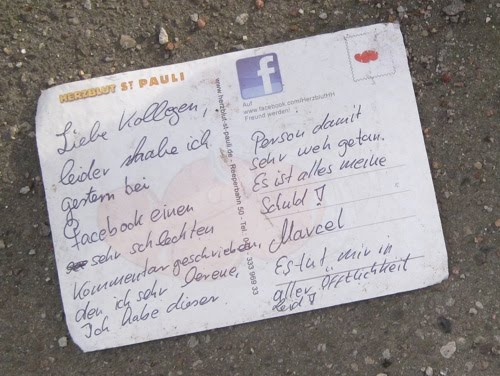 HERZBLUT ST PAULI
Liebe Kollegen,
leider habe ich
gestern bei
Facebook einen
sehr schlechten
Kommentar geschrieben,
den ich sehr bereue.
Ich habe dieser
www.herzblut-st-pauli.de - Reeperbahn 50 - Tel. 333 969 33
f
Auf
www.facebook.com/HerzblutHH
Freund werden!
Person damit
sehr weh getan.
Es ist alles meine
Schuld!
Marcel
Es tut mir in
aller Öfftlichkeit
leid!